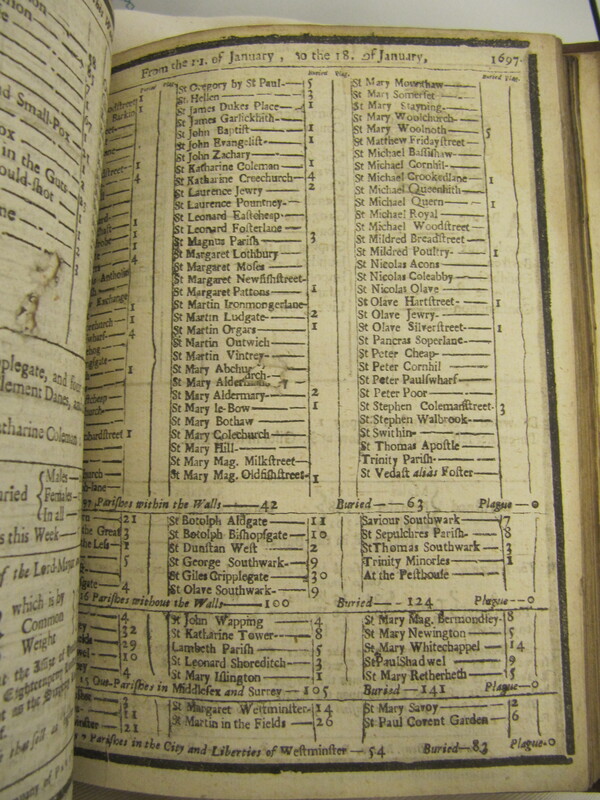 From the 11. of January, to the 18. of January, 1697.
Buried Plag. Buried Plag.
St Gregory by St Paul 5
St Hellen 3
St James Dukes Place 1
St James Garlickhith
St John Baptist 1
St John Evangelist 1
St John Zachary
St Katharine Coleman 1
St Katharine Creechurch 4
St Laurence Jewry 2
St Laurence Pountney
St Leonard Eastcheap
St Leonard Fosterlane
St Magnus Parish 3
St Margaret Lothbury
St Margaret Moses
St Margaret Newfishstreet
St Margaret Pattons 1
St Martin Ironmongerlane
St Martin Ludgate 2
St Martin Orgars 1
St Martin Outwich
St Martin Vintrey
St Mary Abchur
St Mary Alderm
St Mary Aldermary 2
St Mary le-Bow 1
St Mary Bothaw
St Mary Colechurch
St Mary Hill
St Mary Mag. Milkstreet
St Mary Mag. Oldfishstreet 1
St Mary Mounthaw
St Mary Somerset
St Mary Stayning
St Mary Woolchurch
St Mary Woolnoth 5
St Matthew Fridaystreet
St Michael Bassishaw
St Michael Cornhil
St Michael Crookedlane 1
St Michael Queenhith
St Michael Quern 1
St Michael Royal
St Michael Woodstreet
St Mildred Breadstreet
St Mildred Poultry 1
St Nicolas Acons
St Nicolas Coleabby
St Nicolas Olave
St Olave Hartstreet 1
St Olave Jewry
St Olave Silverstreet 1
St Pancras Soperlane
St Peter Cheap
St Peter Cornhil
St Peter Paulswharf
St Peter Poor
St Stephen Colemanstreet 3
St Stephen Walbrook
St Swithin
St Thomas Apostle
Trinity Parish
St Vedast alias Foster
97 Parishes within the Walls 42 Buried 63 Plague 0
St Botolph Aldgate 11
St Botolph Bishopsgate 10
St Dunstan West 2
St George Southwark 9
St Giles Cripplegate 30
St Olave Southwark 9
Saviour Southwark 7
St Sepulchres Parish 8
St Thomas Southwark 3
Trinity Minories 1
At the Pesthouse
16 Parishes without the Walls 100 Buried 124 Plague 0
St John Wapping 4
St Katharine Tower 8
Lambeth Parish 5
St Leonard Shoreditch 3
St Mary Islington 1
St Mary Mag. Bermondsey 8
St Mary Newington 5
St Mary Whitechappel 14
St Paul Shadwel 9
St Mary Retherheth 5
15 Out-Parishes in Middlesex and Surrey 105 Buried 141 Plague 0
St Margaret Westminster 14
St Martin in the Fields 26
St Mary Savoy 2
St Paul Covent Garden 6
Parishes in the City and Liberties of Westminster 54 Buried 83 Plague 0
nd Small-Pox
in the Guts
ould-shot
plegate, and four
lement Danes, and
atharine Coleman
Males
Females
In all
this Week
of the Lord-Mayor
which is by
Common
Weight